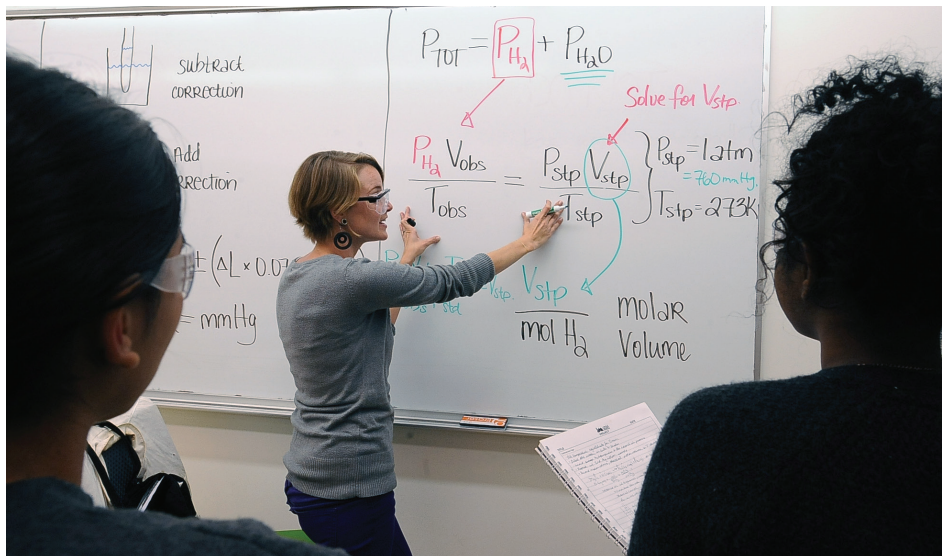 subtract
correction
Add
± (ΔL × 0.07
= mmHg
P_TOT = P_H₂ + P_H₂O
Solve for V_stp.
P_H₂ V_obs / T_obs = P_stp V_stp / T_stp
P_stp = 1 atm
= 760 mmHg.
T_stp = 273K
V_stp / mol H₂
molar
Volume